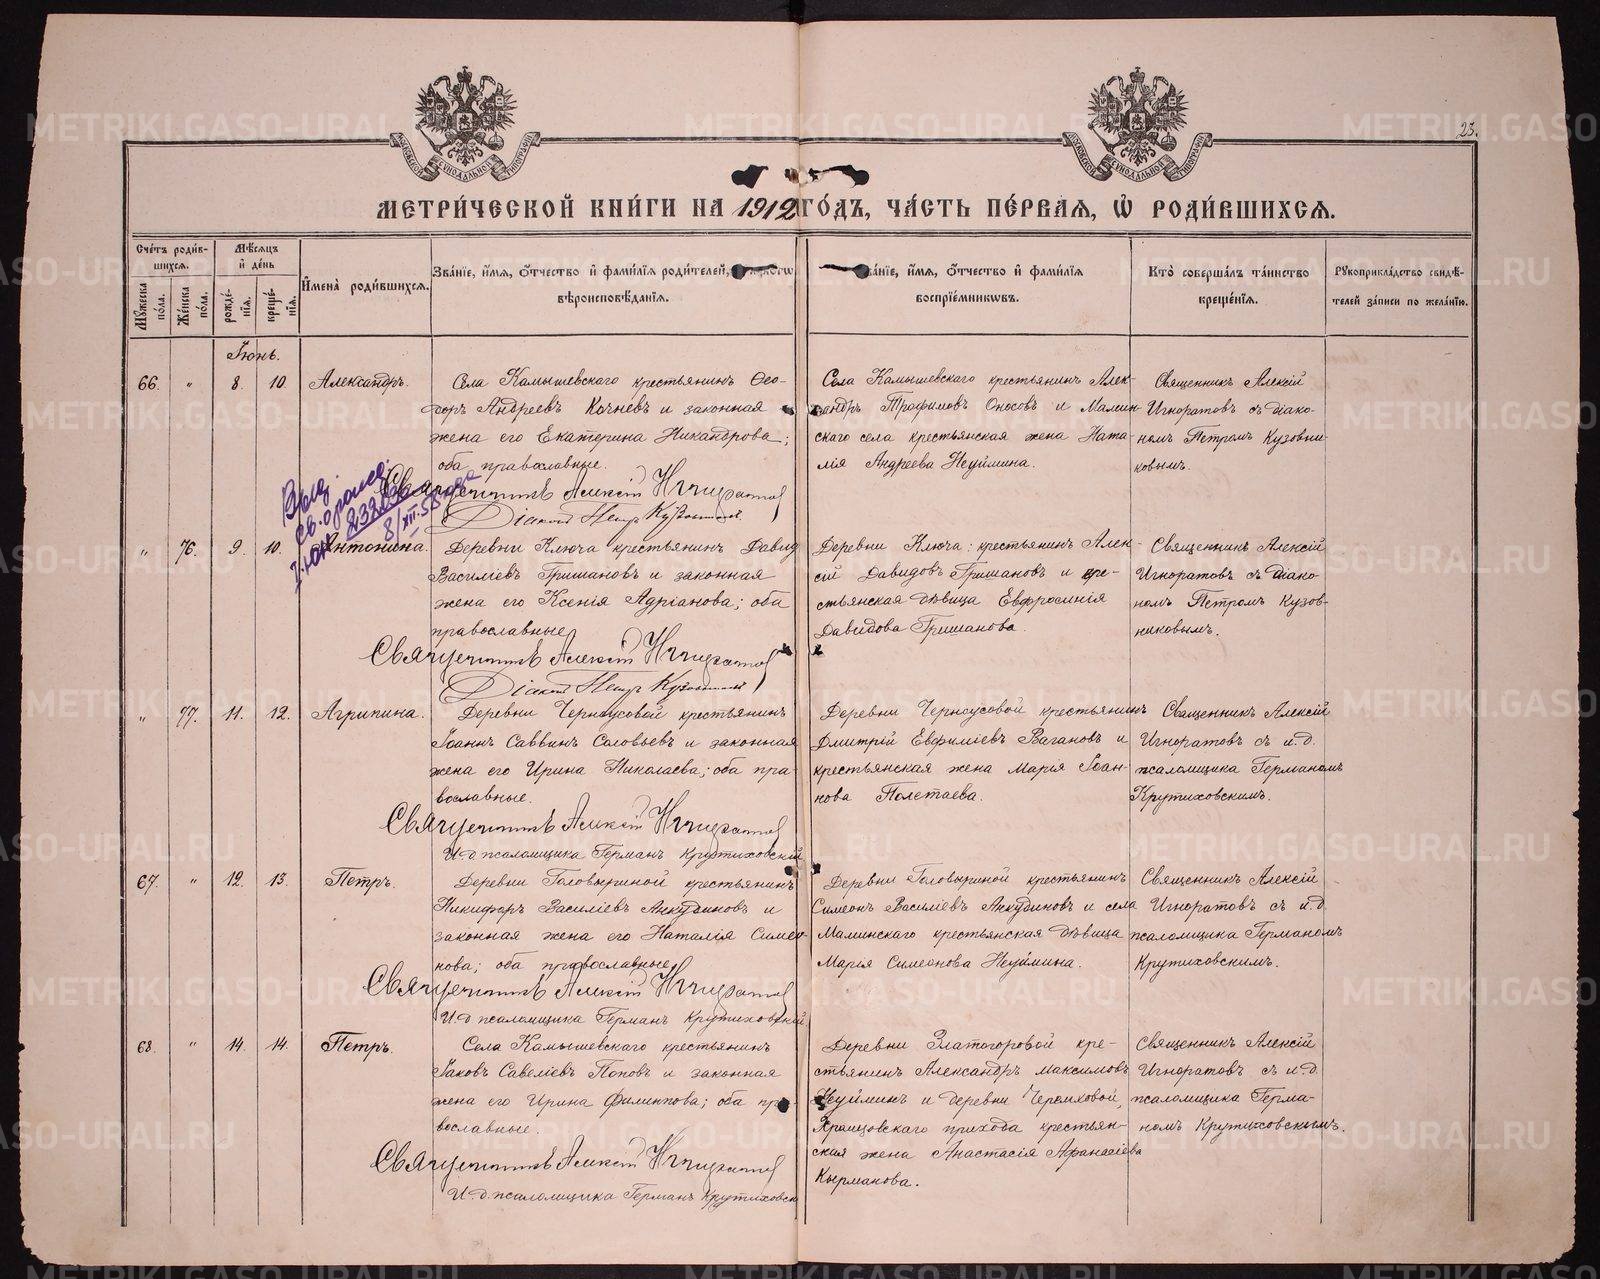 23.
МЕТРИ́ЧЕСКОЙ КНИ́ГИ НА 1912 ГО́ДЪ, ЧА́СТЬ ПЕ́РВАЯ, Ѡ РОДИ́ВШИХСЯ.
Сче́тъ роди́в-
шихся.
Мѣ́сяцъ
и҆ де́нь
Мꙋ́жеска по́ла.
Же́нска по́ла.
рожде́-
нїя.
креще́-
нїя.
И҆мена̀ роди́вшихся.
Зва́нїе, и҆́мя, ѻ҆́тчество и҆ фами́лїя роди́телей,
вѣроисповѣ́данїя.
Зва́нїе, и҆́мя, ѻ҆́тчество и҆ фами́лїя
воспрїе́мникѡвъ.
Кто̀ соверша́лъ та́инство
креще́нїя.
Рꙋкоприкла́дство свидѣ́-
телей за́писи по жела́нїю.
Іюнь.
66. " 8. 10. Александръ.
Села Камышевскаго крестьянинъ Ѳео-
доръ Андреевъ Кочневъ и законная
жена его Екатерина Никандрова;
оба православные.
Священникъ Алексій Игноратовъ
Діаконъ Петръ Кузовниковъ
Села Камышевскаго крестьянинъ Алек-
сандръ Трофимовъ Оносовъ и Мамин-
скаго села крестьянская жена Ната-
лія Андреева Неуймина.
Священникъ Алексій
Игноратовъ съ діако-
номъ Петромъ Кузовни-
ковымъ.
" 76. 9. 10. Антонина.
Деревни Ключа крестьянинъ Давид
Василіевъ Гришановъ и законная
жена его Ксенія Адріанова; оба
православные.
Священникъ Алексій Игноратовъ
Діаконъ Петръ Кузовниковъ
Деревни Ключа: крестьянинъ Алек-
сій Давидовъ Гришановъ и кре-
стьянская дѣвица Евфросинія
Давидова Гришанова.
Священникъ Алексій
Игноратовъ съ діако-
номъ Петромъ Кузов-
никовымъ.
" 77. 11. 12. Агрипина.
Деревни Черноусовой крестьянинъ
Іоаннъ Саввинъ Соловьевъ и законная
жена его Ирина Николаева; оба пра-
вославные.
Священникъ Алексій Игноратовъ
И. д. псаломщика Германъ Крутиховскій
Деревни Черноусовой крестьянинъ
Дмитрій Евфиміевъ Вагановъ и
крестьянская жена Марія Іоан-
нова Полетаева.
Священникъ Алексій
Игноратовъ съ и. д.
псаломщика Германомъ
Крутиховскимъ.
67. " 12. 13. Петръ.
Деревни Головыриной крестьянинъ
Никифоръ Василіевъ Анкудиновъ и
законная жена его Наталія Симео-
нова; оба православные.
Священникъ Алексій Игноратовъ
И. д. псаломщика Германъ Крутиховскій
Деревни Головыриной крестьянинъ
Симеонъ Василіевъ Анкудиновъ и села
Маминскаго крестьянская дѣвица
Марія Симеонова Неуймина.
Священникъ Алексій
Игноратовъ съ и. д.
псаломщика Германомъ
Крутиховскимъ.
68. " 14. 14. Петръ.
Села Камышевскаго крестьянинъ
Іаковъ Савеліевъ Поповъ и законная
жена его Ирина Филиппова; оба пра-
вославные.
Священникъ Алексій Игноратовъ
И. д. псаломщика Германъ Крутиховск
Деревни Златогоровой кре-
стьянинъ Александръ Максимовъ
Неуйминъ и деревни Черемховой,
Храмцовскаго прихода крестьян-
ская жена Анастасія Афанасіева
Кырманова.
Священникъ Алексій
Игноратовъ съ и. д.
псаломщика Герма-
номъ Крутиховскимъ.
METRIKI.GASO-URAL.RU